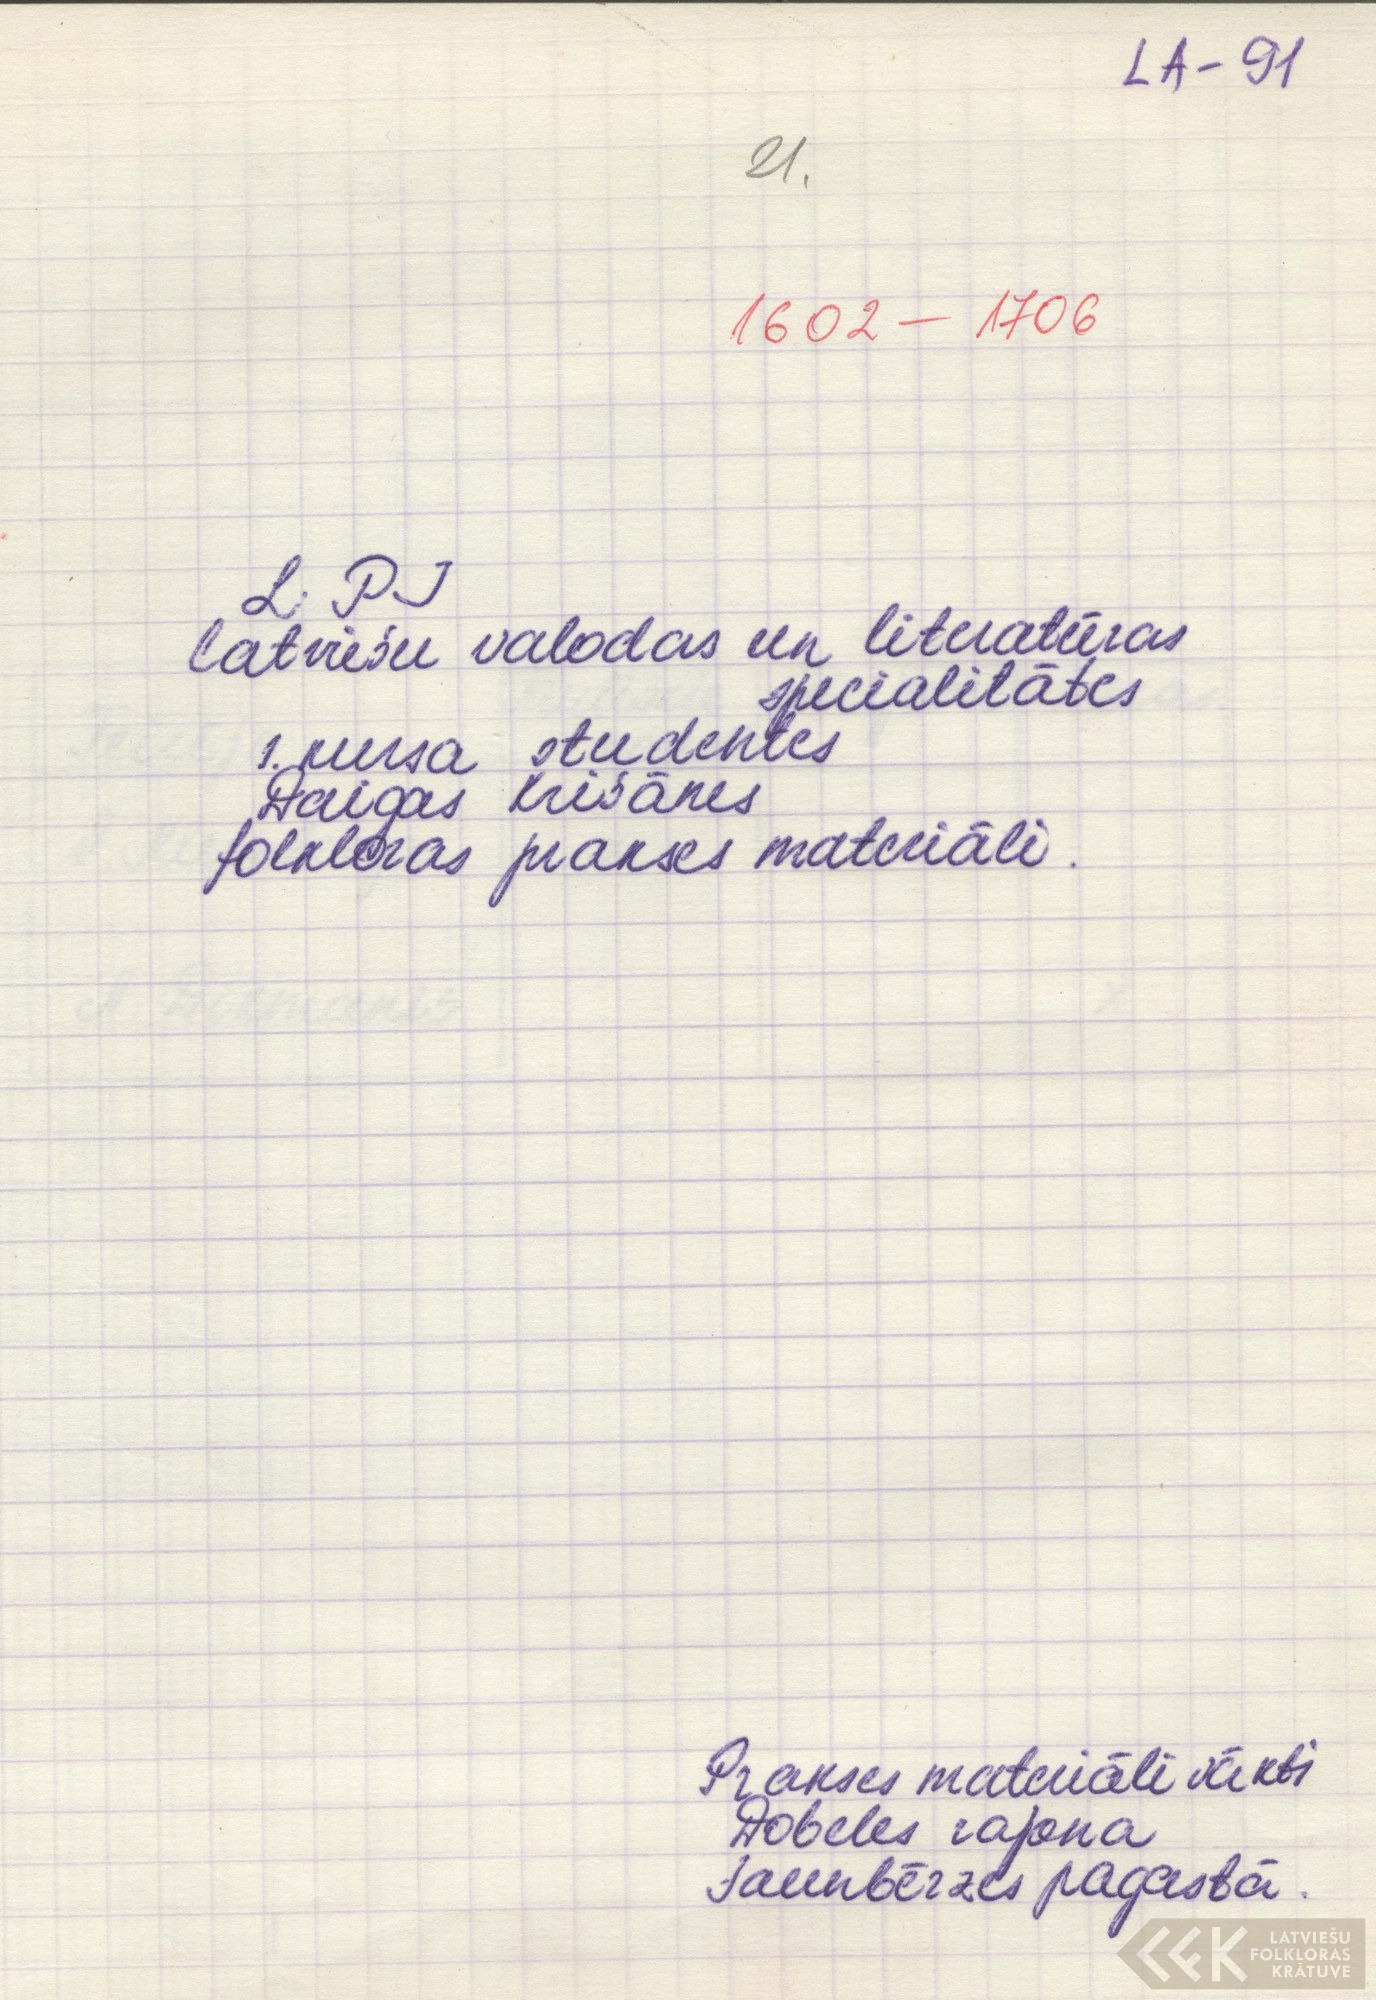 LA-91
21.
1602 - 1706
L. P. I
latviešu valodas un literatūras
specialitātes
1. kursa studentes
Daigas Krišānes
folkloras prakses materiāli.
Prakses materiāli vākti
Dobeles rajona
Jaunbērzes pagastā.
LATVIEŠU
FOLKLORAS
KRĀTUVE